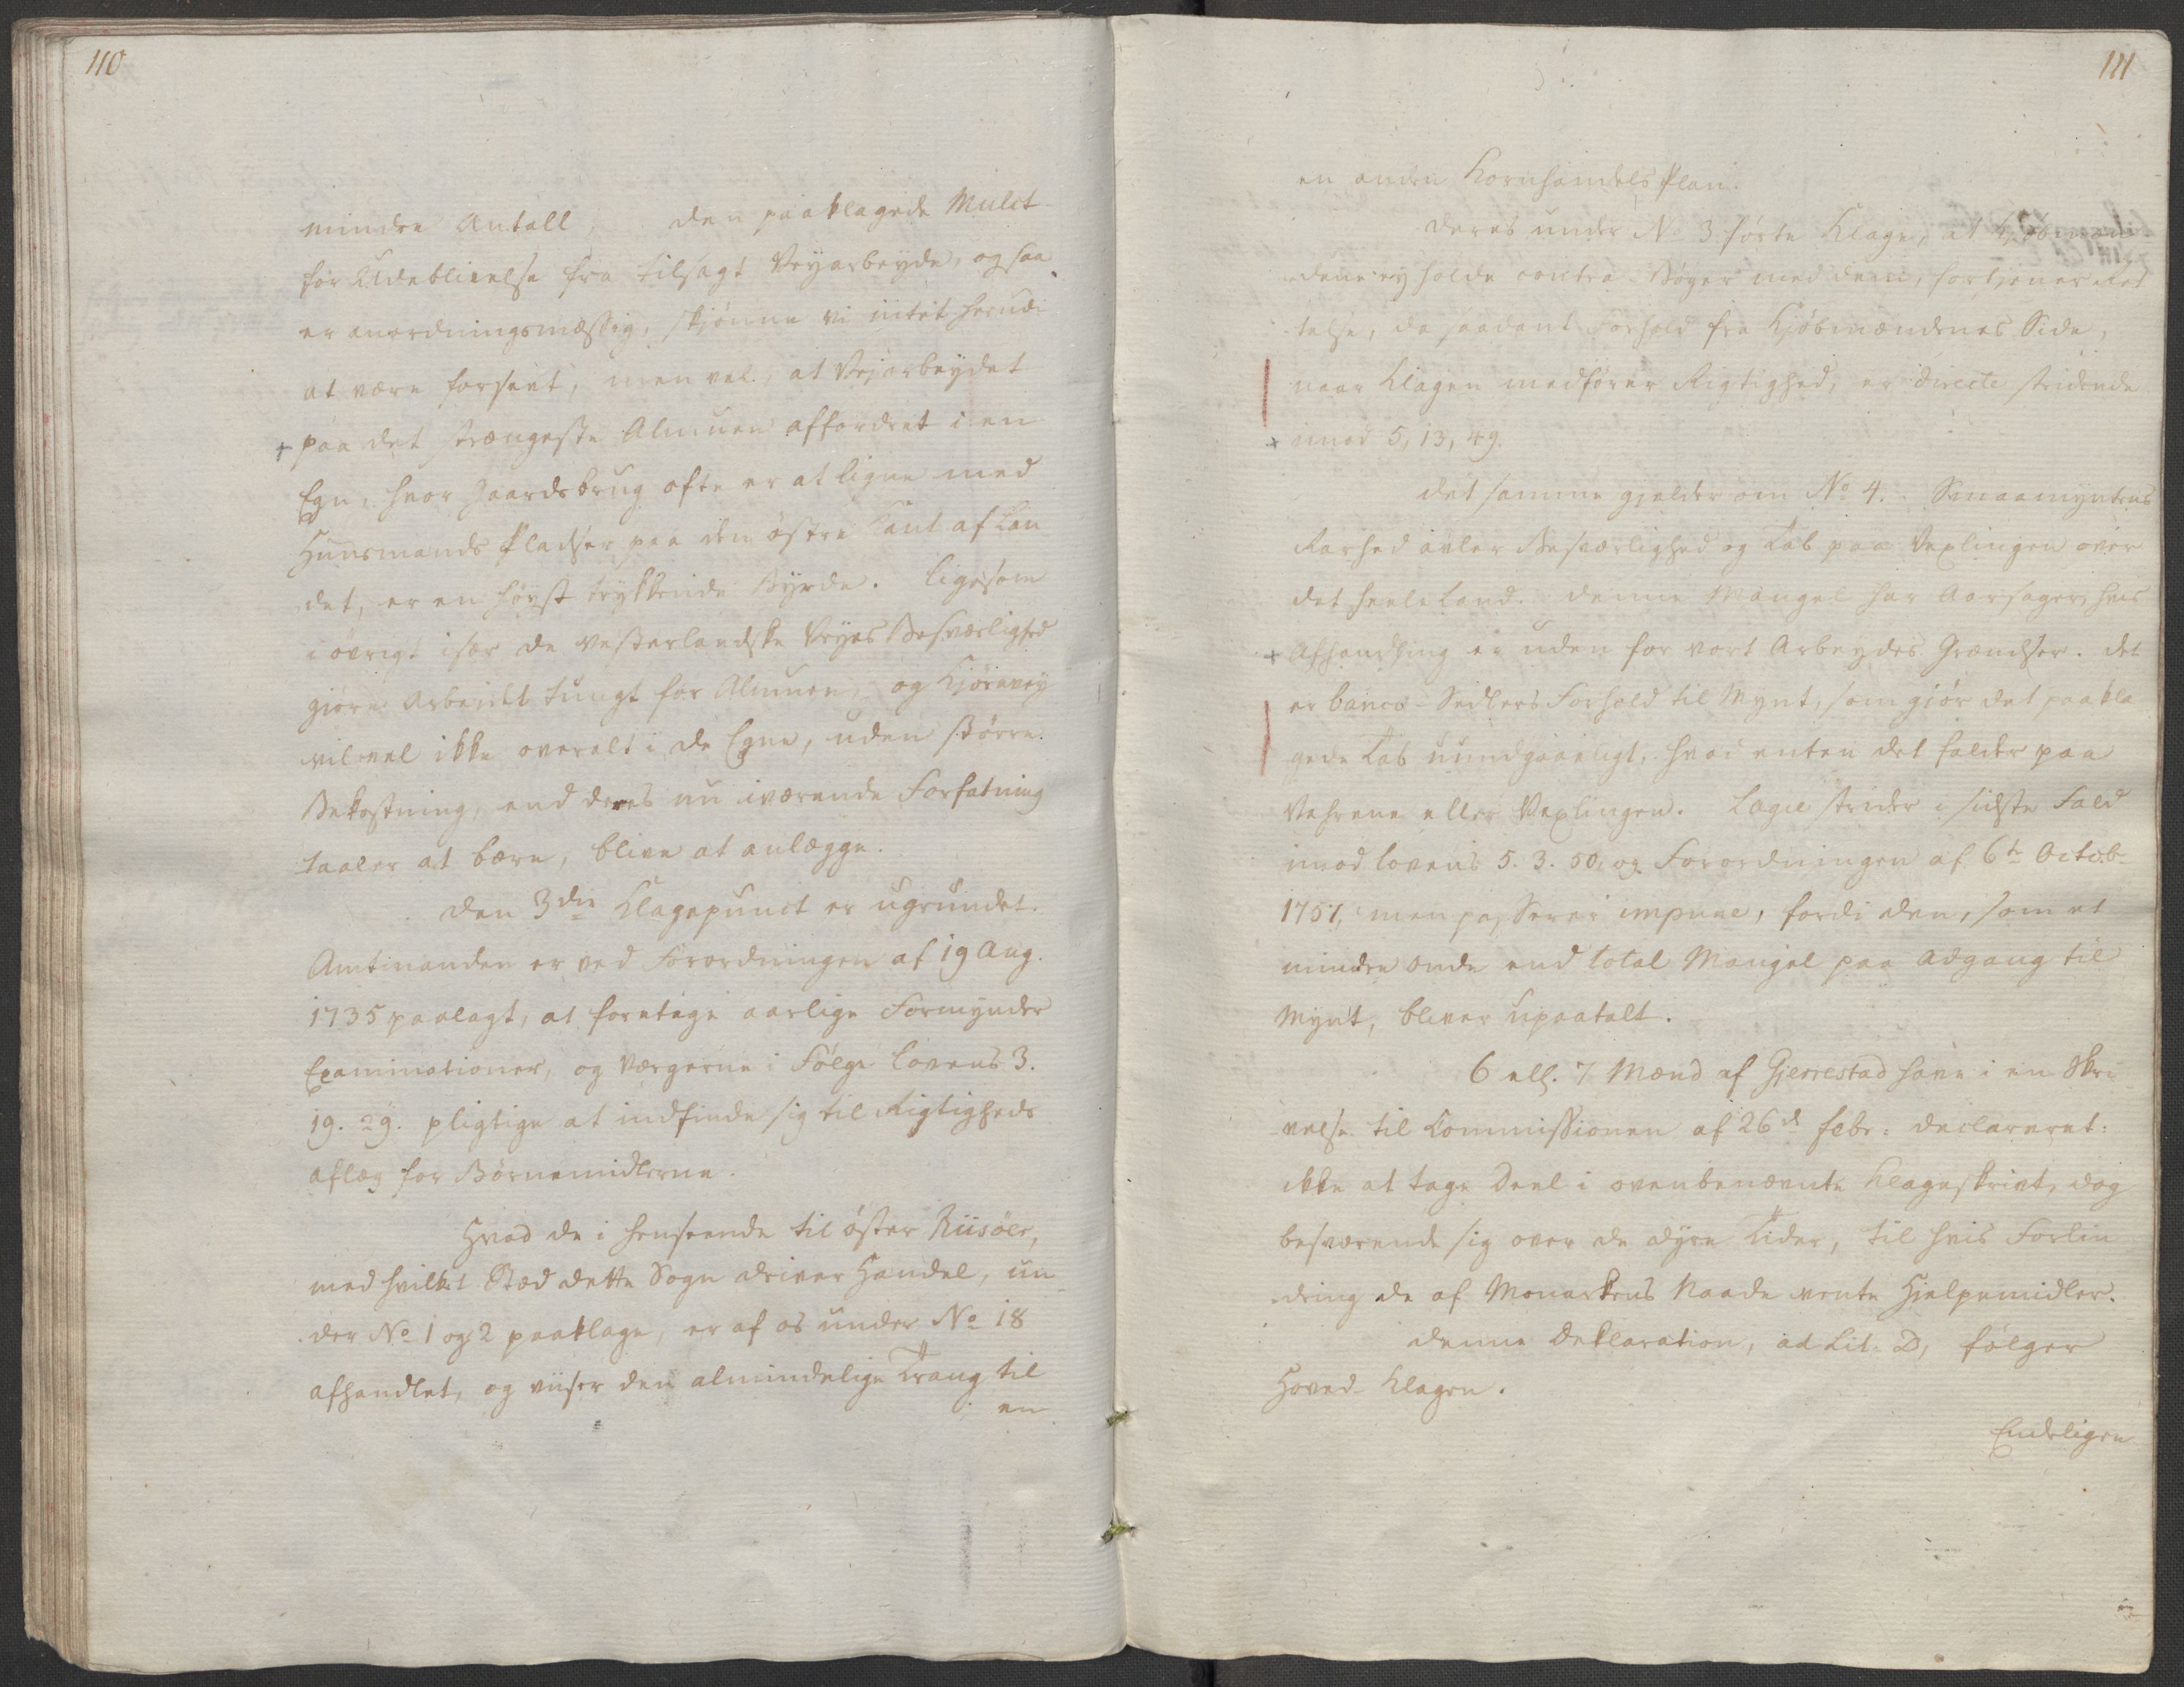 110
mindre Antall, den paaklagede Mulct
for Udeblivelse fra tilsagt Veyarbeyde, ogsaa
er anordningsmæssig, skjønne vi intet herudi
at være forseet, men vel, at Vejarbeydet
+ paa det strængeste Almuen affordret i en
Egn, hvor Gaardsbrug ofte er at ligne med
Huusmands Pladser paa den östre Kant af Lan
det, er en höyst trykkende Byrde. Ligesom
i övrigt især de vesterlandske Veyes Besværlighed
giöre Arbeidet tungt for Almuen, og Kjörevey
vil vel ikke overalt i de Egne, uden större
Bekostning, end deres nu værende Forfatning
taaler at bære, blive at anlægge.
Den 3die Klagepunct er ugrundet.
Amtmanden er ved Forordningen af 19 Aug.
1735 paalagt, at foretage aarlige Formynder
Examinationer, og Værgerne i Fölge Lovens 3.
19. 29. pligtige at indfinde sig til Rigtigheds
aflæg for Börnemidlerne.
Hvad de i Henseende til öster Riisöer,
med hvilket Stæd dette Sogn driver Handel, un
der No 1 og 2 paaklage, er af os under No 18
afhandlet, og viiser den almindelige Trang til
en
111
en anden Kornhandels Plan.
Deres under No 3 förte Klage, at Kjöbmæn
dene ey holde contra-Böger med dem, fortjener Ret
telse, da saadant Forhold fra Kjöbmændenes Side,
naar Klagen medförer Rigtighed, er directe stridende
+ imod 5, 13, 49.
Det samme gjelder om No 4. Smaamyntens
Rarhed avler Besværlighed og Tab paa Vexlingen over
det heele Land. Denne Mangel har Aarsager, hvis
+ Afhandling er uden for vort Arbeydes Grændser. Det
er banco-Sedlers Forhold til Mynt, som giör det paakla
gede Tab uundgaaeligt, hvad enten det falder paa
Vahrene eller Vexlingen. Lagie strider i sidste Fald
imod Lovens 5. 3. 50. og Forordningen af 6te Octob.
1757, men impune, fordi den, som et
mindre Onde end total Mangel paa Adgang til
Mynt, bliver upaatalt.
6 ell. 7 Mænd af Gjerrestad have i en Skri
velse til Commissionen af 26d Febr: declareret:
ikke at tage Deel i ovenbenævnte Klageskrivt, dog
besværende sig over de dyre Tider, til hvis Forlin
dring de af Monarkens Naade vente Hjelpemidler.
Denne Deklaration, ad Lit. D, fölger
Hoved-Klagen.
Endeligen